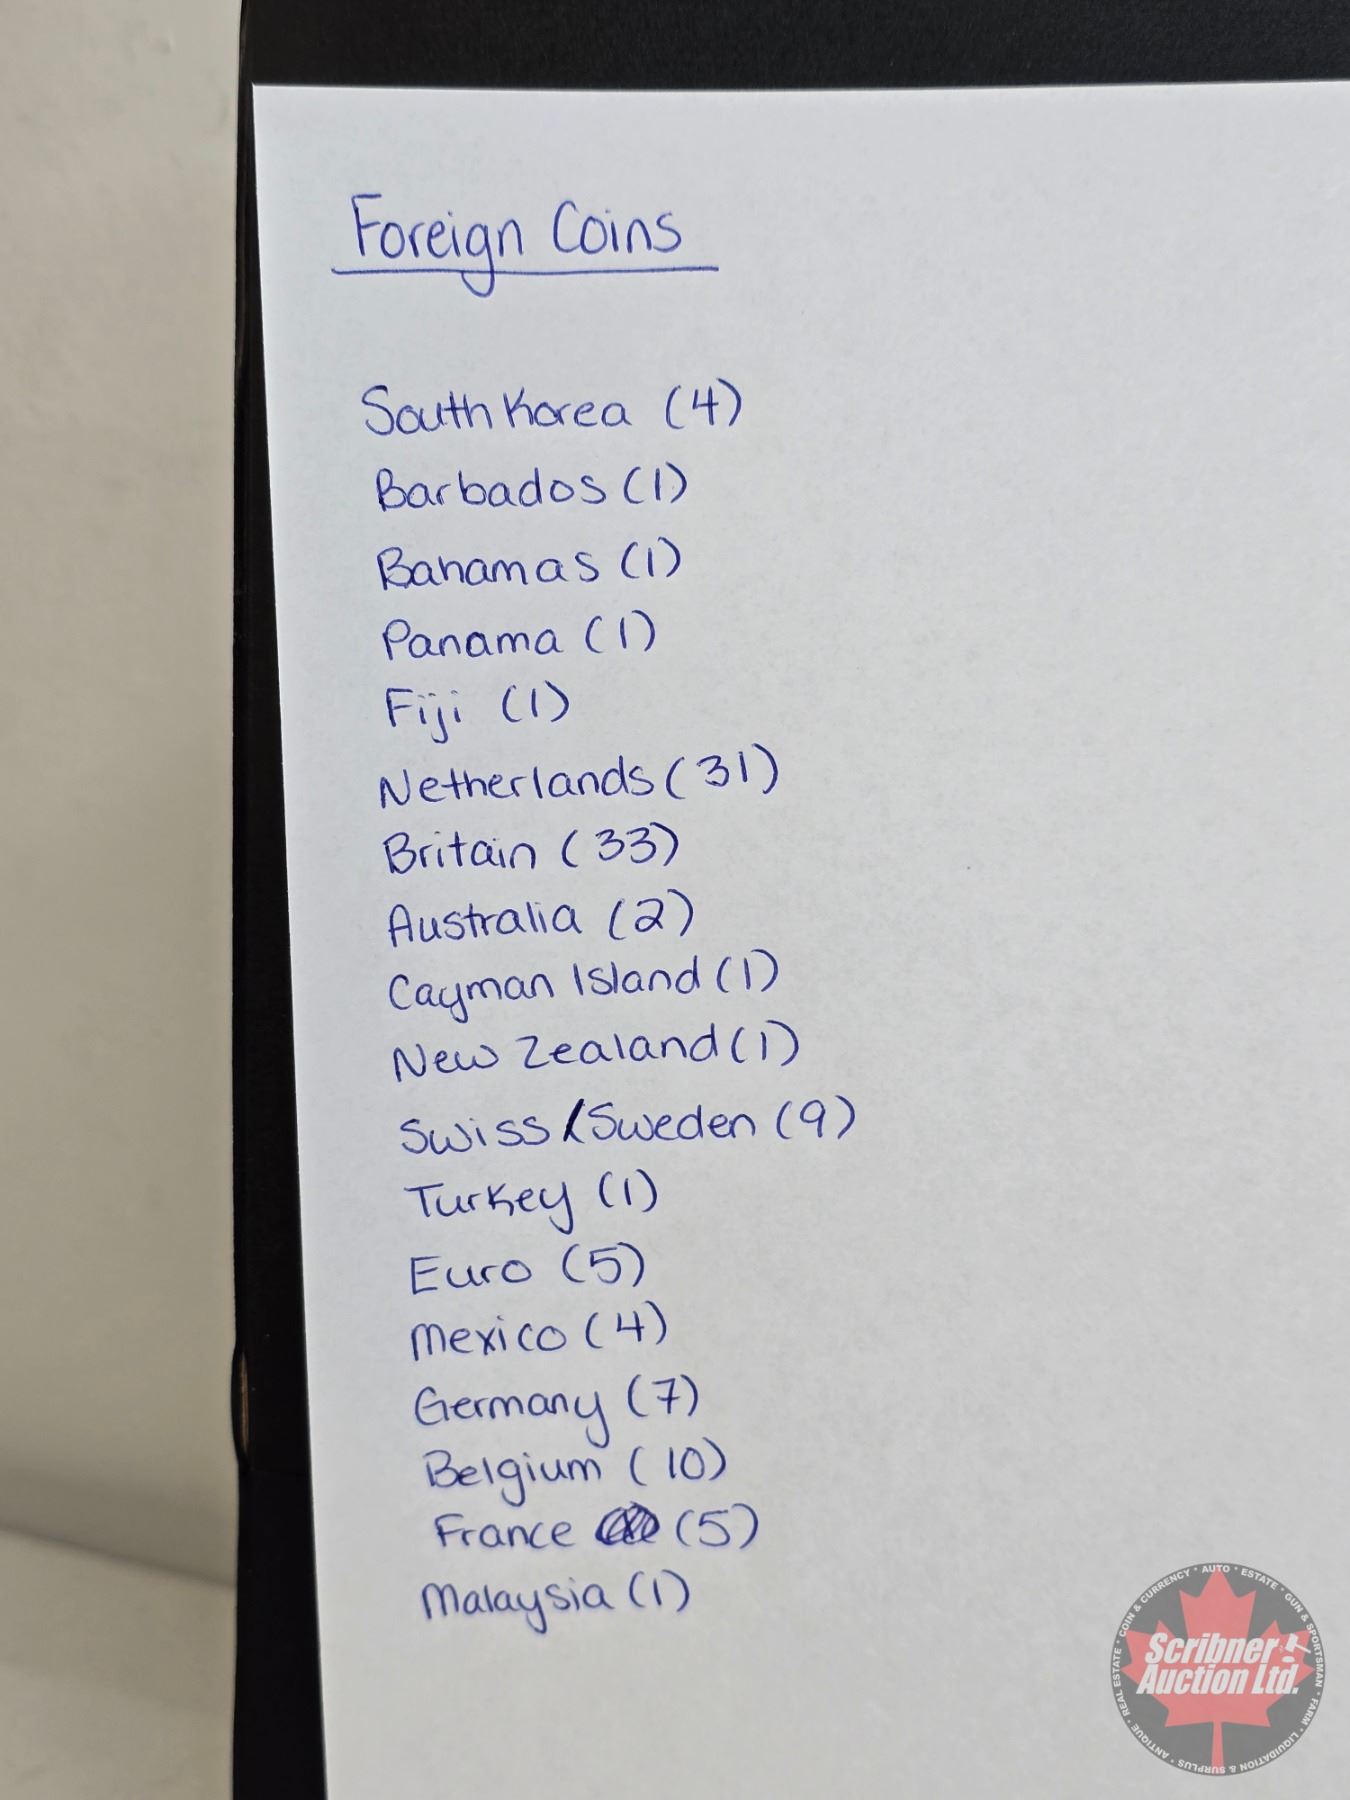 Foreign Coins
South Korea (4)
Barbados (1)
Bahamas (1)
Panama (1)
Fiji (1)
Netherlands (31)
Britain (33)
Australia (2)
Cayman Island (1)
New Zealand (1)
Swiss/Sweden (9)
Turkey (1)
Euro (5)
Mexico (4)
Germany (7)
Belgium (10)
France (5)
Malaysia (1)
COIN & CURRENCY • AUTO • ESTATE • GUN & SPORTSMAN • FARM • LIQUIDATION & SURPLUS • ANTIQUE • REAL ESTATE •
Scribner
Auction Ltd.